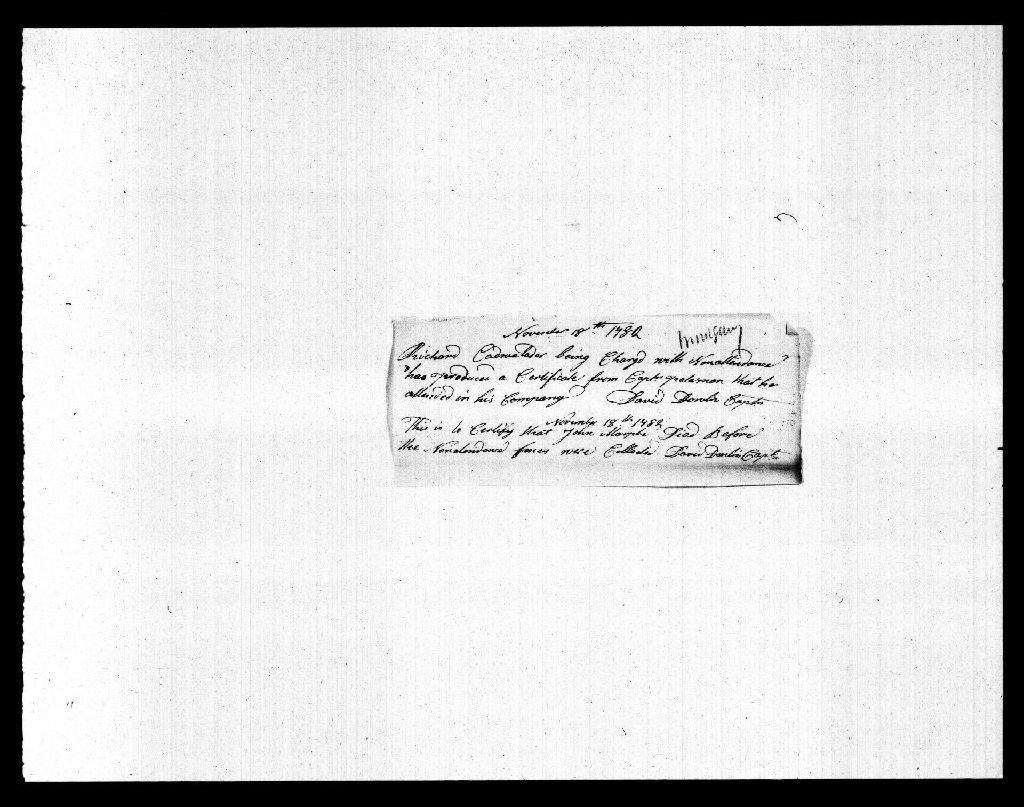 November 18th 1782
Richard Cadwalader being Charged with Nonattendance
has produced a Certificate from Capt. that he
attended in his Company David Captn
November 18th 1782
This is to Certify that John Died Before
the Nonatendance fines were Collected David Captn